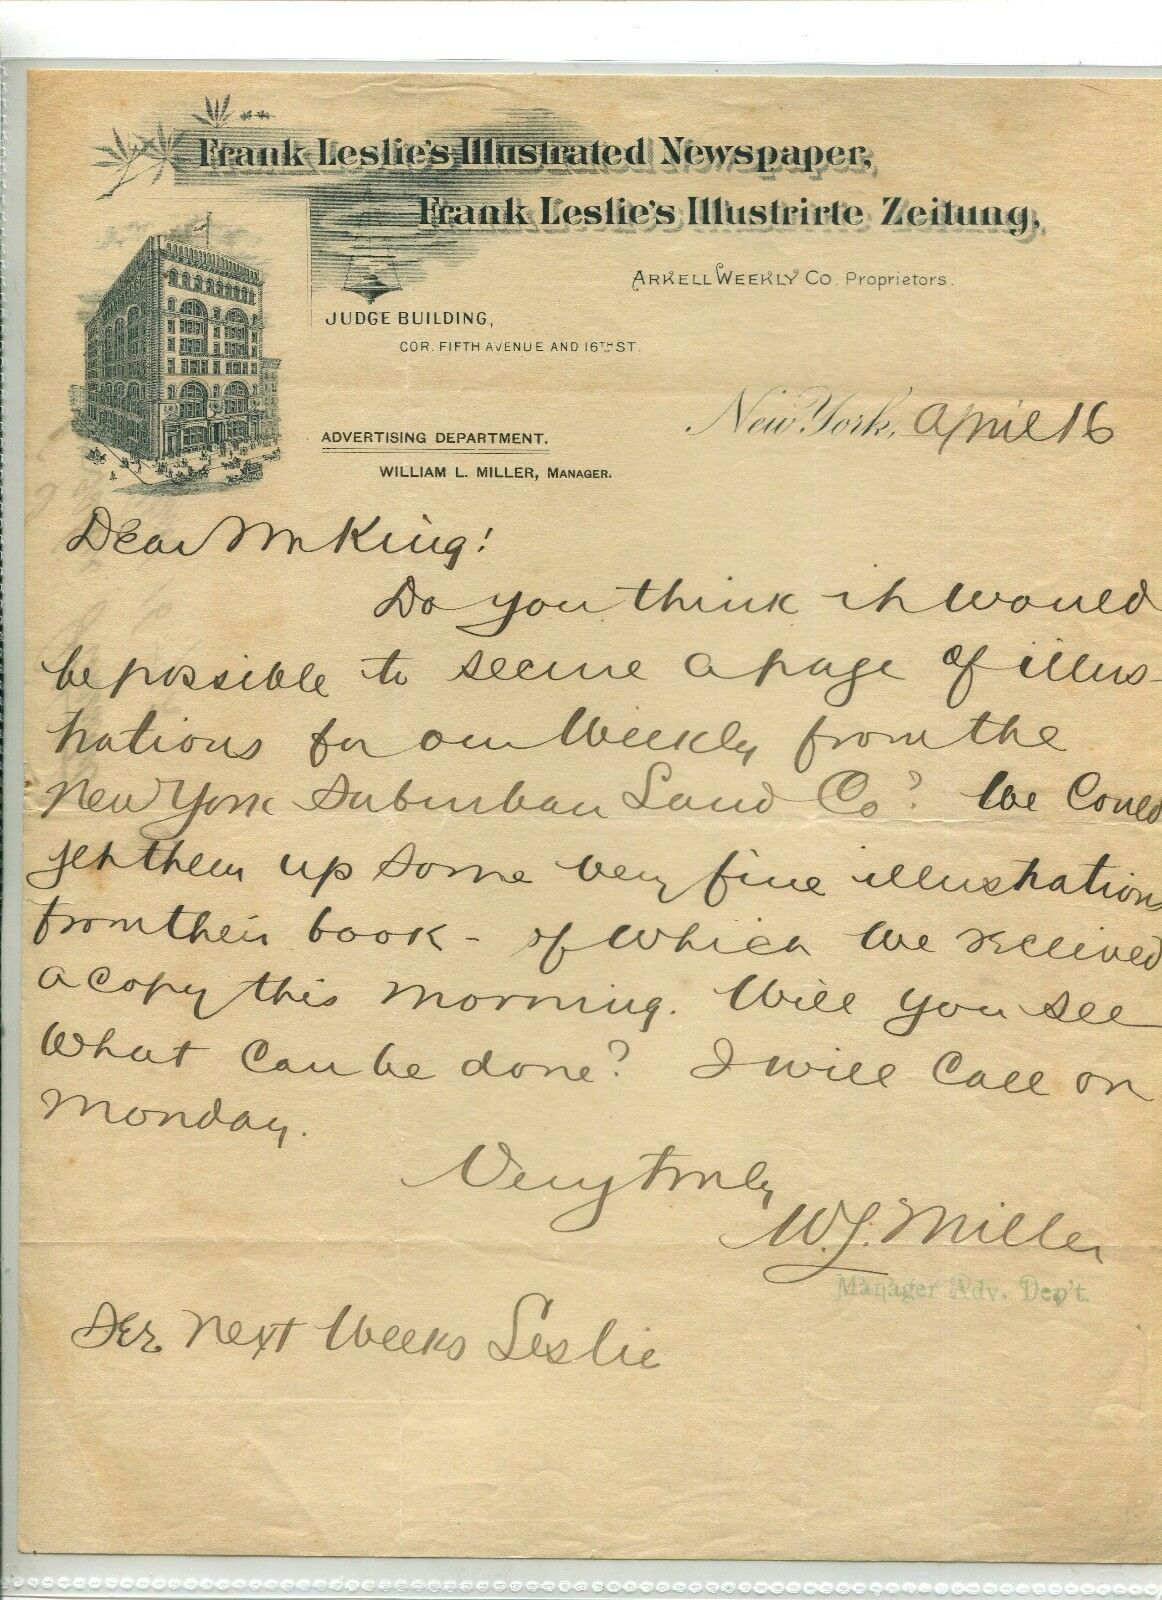 Frank Leslie's Illustrated Newspaper,
Frank Leslie's Illustrirte Zeitung,
ARKELL WEEKLY CO. Proprietors.
JUDGE BUILDING,
COR. FIFTH AVENUE AND 16TH ST.
New York, April 16
ADVERTISING DEPARTMENT.
WILLIAM L. MILLER, MANAGER.
Dear Mr King!
Do you think it would
be possible to secure a page of illus-
trations for our Weekly from the
New York Suburban Land Co? We Could
get them up some very fine illustrations
from their book - of which we received
a copy this morning. Will you see
what can be done? I will Call on
Monday.
Very truly
W. L. Miller
Manager Adv. Dep't.
next Weeks Leslie